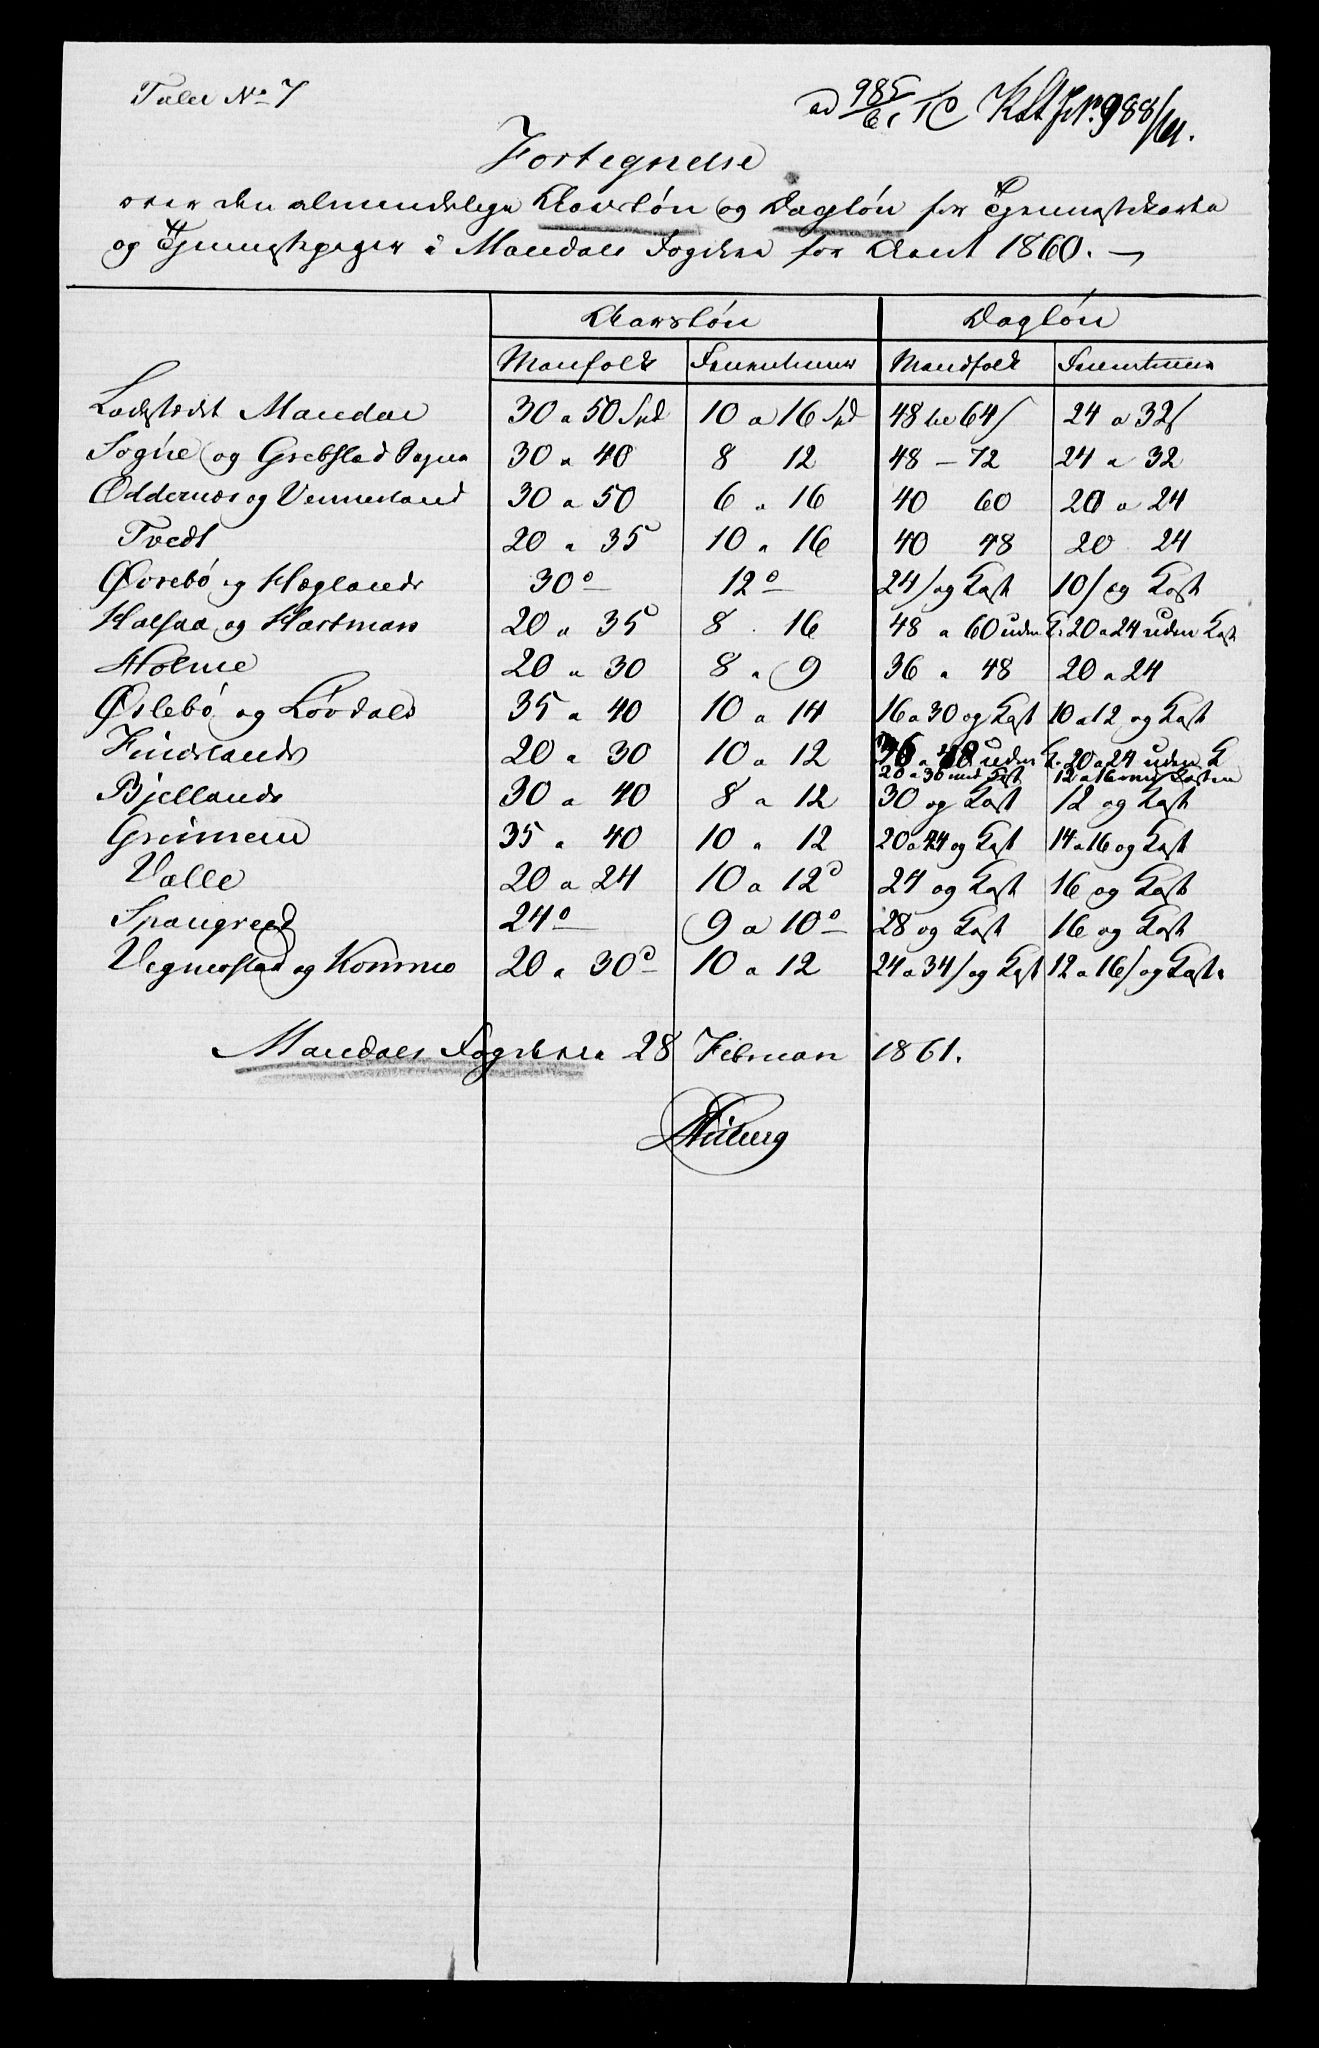 Tabel No 7
ad 985/61 K S J. No. 988/61.
Fortegnelse
over den almindelige Aarsløn og Dagløn for Tjenestekarle
og Tjenestepiger i Mandals Fogderi for Aaret 1860. —
Aarsløn Dagløn
Manfolk Fruentimer Mandfolk Fruentimer
Ladestedet Mandal 30 a 50 Spd 10 a 16 Spd 48 til 64 ſ 24 a 32 ſ
Søgne og Grebstad Sogne 30 a 40 8 12 48 — 72 24 a 32
Oddernæs og Vennesland 30 a 50 6 a 16 40 60 20 a 24
Tvedt 20 a 35 10 a 16 40 48 20 24
Øvrebø og Hæglands 30 12 24 ſ og Kost 10 ſ og Kost
Halsaa og Hartmark 20 a 35 8 . 16 48 a 60 uden K. 20 a 24 uden Kost
Holme 20 a 30 8 a 9 36 a 48 20 a 24
Øslebø og Løvdals 35 a 40 10 a 14 16 a 30 og Kost 10 a 12 og Kost
Finslands 20 a 30 10 a 12 36 a 48 uden K. 20 a 24 uden K
20 a 30 med Kost 12 a 16 med Kosten
Bjellands 30 a 40 8 a 12 30 og Kost 12 og Kost
Grinnem 35 a 40 10 a 12 20 a 24 og Kost 14 a 16 og Kost
Valle 20 a 24 10 a 12 24 og Kost 16 og Kost
Spangreid 24 9 a 10 28 og Kost 16 og Kost
Vigmostad og Konsmo 20 a 30 10 a 12 24 a 34 ſ og Kost 12 a 16 ſ og Kost.
Mandals Fogderi 28 Februar 1861.